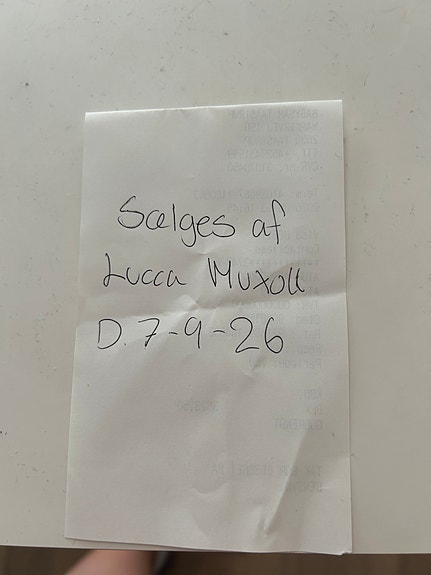 Sælges af
Lucca Muxoll
D. 7-9-26